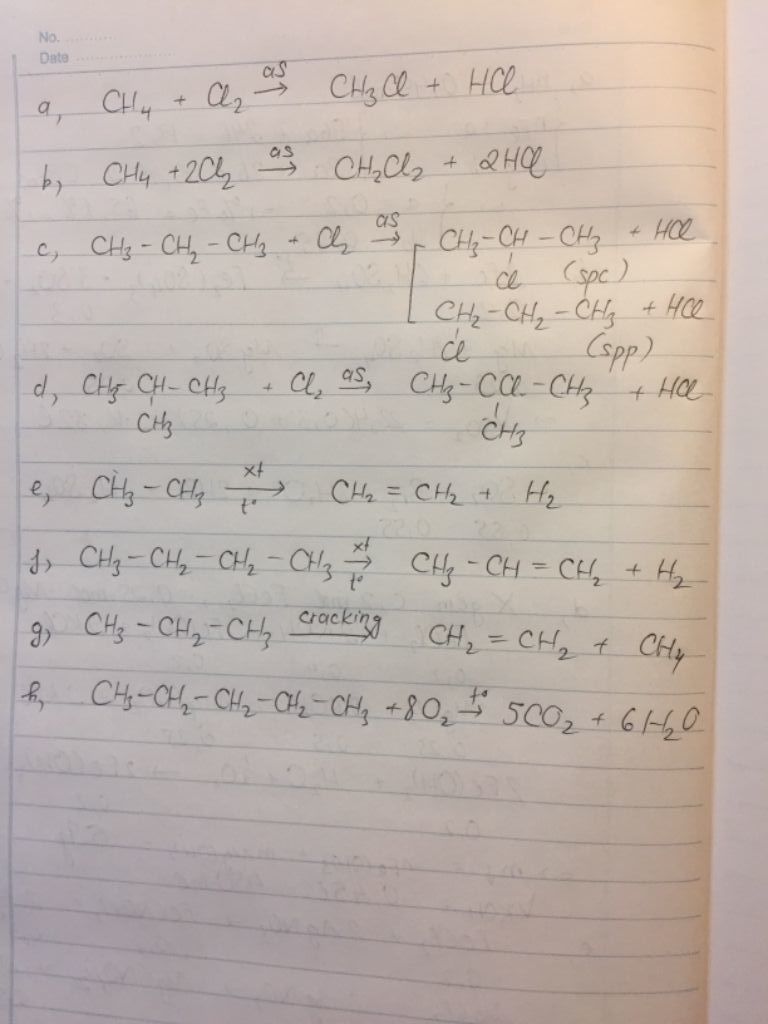 No. ............
Date ........................
a, CH₄ + Cl₂ —as→ CH₃Cl + HCl
b, CH₄ + 2Cl₂ —as→ CH₂Cl₂ + 2HCl
c, CH₃ – CH₂ – CH₃ + Cl₂ —as→ [ CH₃ – CH – CH₃ + HCl
Cl (spc)
CH₂ – CH₂ – CH₃ + HCl
Cl (spp)
d, CH₃ – CH – CH₃ + Cl₂ —as→ CH₃ – CCl – CH₃ + HCl
CH₃ CH₃
e, CH₃ – CH₃ —xt, t°→ CH₂ = CH₂ + H₂
f, CH₃ – CH₂ – CH₂ – CH₃ —xt, t°→ CH₃ – CH = CH₂ + H₂
g, CH₃ – CH₂ – CH₃ —cracking→ CH₂ = CH₂ + CH₄
h, CH₃ – CH₂ – CH₂ – CH₂ – CH₃ + 8O₂ —t°→ 5CO₂ + 6H₂O